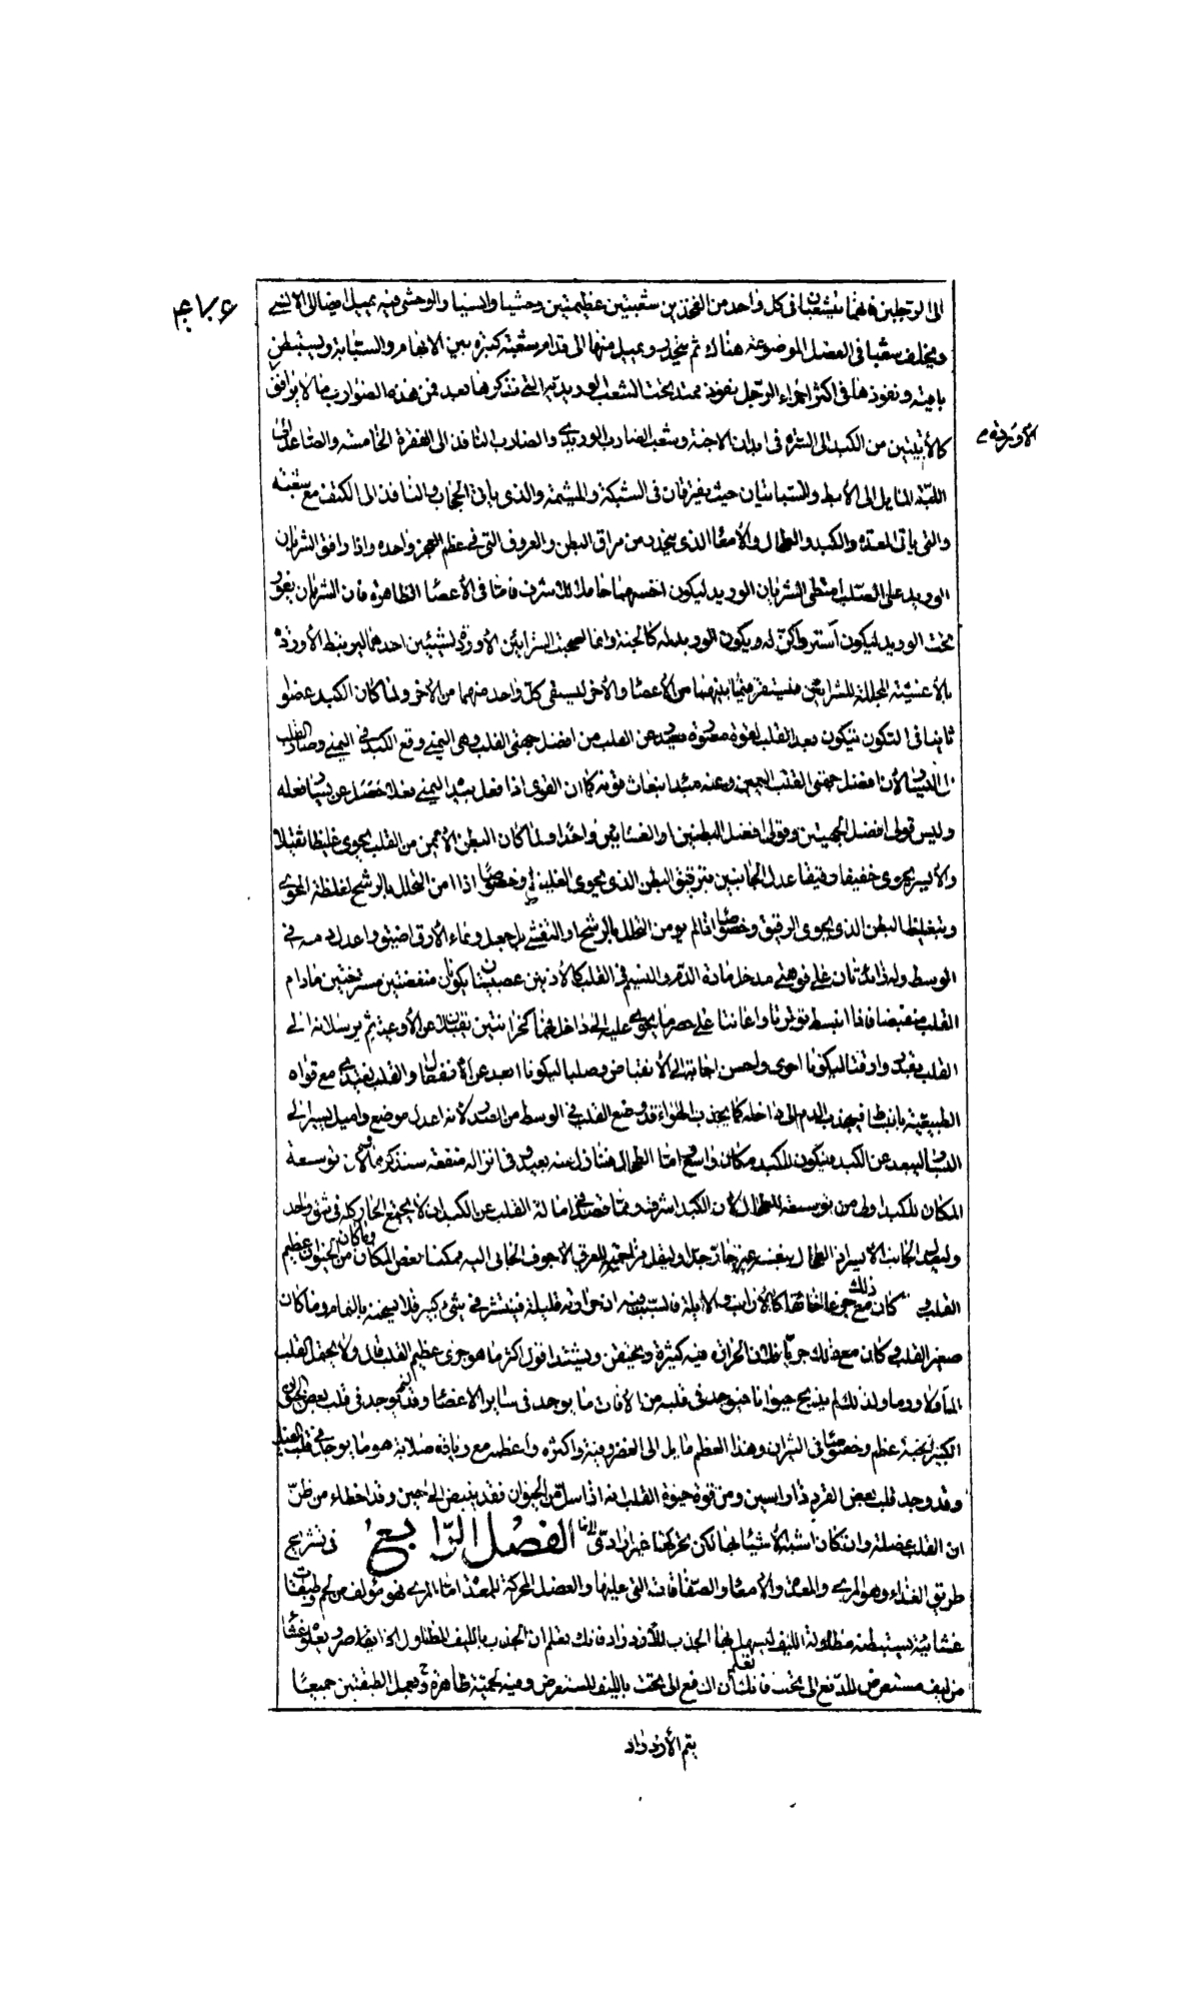 الى الرجلين فانهما يتشعبان فى كل واحد من الفخذين شعبتين عظيمتين وحشيا وانسيا والوحشى فيه يميل ايضا الى الانسى
ويخلف شعبا فى العضل الموضوعة هناك ثم ينحدر ويميل منها الى قدام شعبة كبيرة بين الابهام والسبابة ويستبطن
باقيه ونفوذها فى اكثر اجزاء الرجل نفوذ ممتد تحت الشعب الوريدية التى نذكرها بعد فمن هذه الضوارب ما لا يوافق
الأوردة
كالأتيين من الكبد الى السرة فى ابدان الاجنة وشعب الضارب الوريدى والضارب النافذ الى الفقرة الخامسة والصاعد الى
اللبة المايل الى الأبط والسباتيان حيث يفترقان فى الشبكة والمشيمة والذى ياتى الحجاب والنافذ الى الكتف مع شعبته
والتى ياتى المعدة والكبد والطحال والأمعا الذى ينحدر من مراق البطن والعروق التى فى عظم العجز واحده واذا رافق الشريان
الوريد على الصلب امتطى الشريان الوريد ليكون اخسهما حاملا للاشرف فاما فى الأعضا الظاهرة فان الشريان يغور
تحت الوريد ليكون استر واكن له ويكون الوريد له كالجنة وانما اصحبت الشرايين الأوردة لشيئين احدهما ليرتبط الأوردة
بالأغشية المجللة للشرايين فيستقر فيما بينهما من الأعضا والأخر ليستقى كل واحد منهما من الأخر ولما كان الكبد عضوا
ثانيا فى التكون يتكون بعد القلب لقوة من القلب من افضل جهتى القلب وهى اليمنى وقع الكبد فى اليمنى وصار القلب
الى اليسار لأن افضل جهتى القلب اليمين وعنه مبدا انبعاث قوته كما ان القوى اذا فعل بيده اليمنى فعلا فضل عن يسار فعله
وليس قولى افضل الجهتين وقولى افضل البطنين او الغشايين واحدا ولما كان البطن الأيمن من القلب يحوى غليظا ثقيلا
والأيسر يحوى خفيفا رقيقا عدل الجانبين بترقيق البطن الذى يحوى الغليظ وخصوصا اذا امن التحلل بالرشح لغلظة المحوى
وبتغليظ البطن الذى يحوى الرقيق وخصوصا اذا لم يومن التحلل بالرشح او التفشى بل جعل وعاء الأرق اضيق واعدله فى
الوسط وله زائدتان على فوهتى مدخل مادة الدم والنسيم فى القلب كالأذنين عصبيتان يكونان متغضنتين مسترخيتين ما دام
القلب منقبضا فاذا انبسط توترتا واعانتا على حصر ما يحتوى عليه الى داخل فهما كخزانتين تقبلان عن الأوعية ثم يرسلانه الى
القلب بقدر وارقتا ليكونا احوى ولحسن اجابة الى الأنقباض وصلبا ليكونا ابعد عن الأنفعال والقلب يغتذى مع قواه
الطبيعية بانبساط فيجذب الدم الى داخله كما يجذب الهواء وقد وضع القلب فى الوسط من الصدر لانه اعدل موضع واميل يسيرا الى
اليسار ليبعد عن الكبد فيكون للكبد مكان واسع اما الطحال فنازل عنه بعيد وفى انزاله منفعة سنذكرها ولأن توسعة
المكان للكبد اولى من توسعة للطحال لأن الكبد اشرف ومما قصد فى امالة القلب عن الكبد ان لا يجتمع الحار كله فى شق واحد
وليعدل الجانب الأيسر اذ الطحال بنفسه غير حار جدا وليقل مزاحمته للعرق الأجوف الجائى اليه ممكنا بعض المكان وما كان من الحيوان عظيم
القلب وكان مع ذلك جزعا خائفا كالأرانب والايلة فالسبب فيه ان حرارته قليلة فينتشر فى شىء كبير فلا يسخنه بالتمام وما كان
صغير القلب وكان مع ذلك جريا فلأن الحرارة فيه كثيرة ويحتقن ويشتد اقول اكثر ما هو جرى عظيم القلب قال ولا يحتمل القلب
الما ولا ورما ولذلك لم يذبح حيوان فيوجد فى قلبه من الافات ما يوجد فى سائر الاعضا وقد يوجد فى قلب بعض الحيوان
الكبير الجثة عظم وخصوصا فى الثيران وهذا العظم مايل الى الغضروفية واكثره واعظمه مع زيادة صلابة هو ما يوجد فى قلب الفيل
وقد وجد قلب بعض القرود ذا راسين ومن قوة حيوة القلب انه اذا سل من الحيوان فقد ينبض الى حين وقد اخطاء من ظن
ان القلب عضلة وان كان اشبه الأشيا بها لكن تحركها غير ارادى الفصل الرابع فى تشريح
طريق الغذاء وهو المرى والمعدة والأمعا والصفاقات التى عليها والعضل المحركة للمعدة اما المرى فهو مؤلف من لحم وطبقات
غشائية يستبطنه متطاولة الليف ليسهل بها الجذب للازدراد فانك تعلم ان الجذب بالليف المطاول اذا تقاصر ويعلوه غشا
من ليف مستعرض للدفع الى تحت فانك تعلم ان الدفع الى تحت بالليف المستعرض وفيه لحمية ظاهرة وبعمل الطبقتين جميعا
يتم الأزدراد